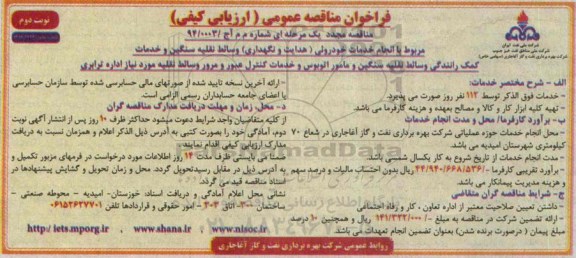 فراخوان مناقصه عمومی ( ارزیابی کیفی)
نوبت دوم
مناقصه مجدد یک مرحله ای شماره م م آج /۹۴/۰۰۰۳
مربوط با انجام خدمات خودروئی ( هدایت و نگهداری) وسائط نقلیه سنگین و خدمات
کمک رانندگی وسائط نقلیه سنگین و مامور اتوبوس و خدمات کنترل عبور و مرور وسائط نقلیه مورد نیاز اداره ترابری
شرکت ملی نفت ایران
الف - شرح مختصر خدمات:
- خدمات فوق الذکر توسط ۱۱۲ نفر روز صورت می پذیرد.
- تهیه کلیه ابزار کار و کالا و مصالح بعهده و هزینه کارفرما می باشد.
ب- برآورد کارفرما/ محل و مدت انجام خدمات
- محل انجام خدمات حوزه عملیاتی شرکت بهره برداری نفت و گاز آغاجاری در شعاع ۷۰
کیلومتری شهرستان امیدیه می باشد.
- مدت انجام خدمات از تاریخ شروع به کار یکسال شمسی باشد.
- برآورد تقریبی کارفرما -/۲۴/۹۴۰/۶۶۸/۵۳۶ ریال بدون احتساب مالیات و درصد سهم
و هزینه مدیریت پیمانکار می باشد.
ج- شرایط مناقصه گران متقاضی
- داشتن تعیین صلاحیت معتبر از اداره تعاون ، کار و رفاه اجتماعی
- ارائه تضمین شرکت در مناقصه به مبلغ -/۱۴۱/۳۳۲/۰۰۰ ریال و همچنین ۱۰ درصد
مبلغ پیمان ( درصورت برنده شدن) بعنوان تضمین انجام تعهدات می باشد.
- ارائه آخرین نسخه تایید شده از صورتهای مالی حسابرسی شده توسط سازمان حسابرسی
یا اعضای جامعه حسابداران رسمی الزامی است.
د- محل، زمان و مهلت دریافت مدارک مناقصه گران
از کلیه متقاضیان واجد شرایط دعوت میشود حداکثر ظرف ۱۰ روز پس از انتشار آگهی نوبت
دوم، آمادگی خود را بصورت کتبی به آدرس ذیل الذکر اعلام و همزمان نسبت به دریافت
مدارک ارزیابی کیفی اقدام نمایند.
ضمنا می بایستی ظرف مدت ۱۴ روز اطلاعات مورد درخواست در فرمهای مزبور تکمیل و
به آدرس ذیل در مقابل رسید تحویل گردد. محل و زمان تحویل و گشایش پیشنهادها در
اسناد مناقصه قید می گردد.
نشانی محل اعلام آمادگی و دریافت اسناد: خوزستان- امیدیه - محوطه صنعتی -
ساختمان ۳۰۰- اتاق ۳۰۳ - امور حقوقی و قراردادها تلفن ۰۶۱۵۲۶۲۷۷۰۱
http:/ iets.mporg.ir ، www.shana.ir ، www.nisoc.ir
روابط عمومی شرکت بهره برداری نفت و گاز آغاجاری